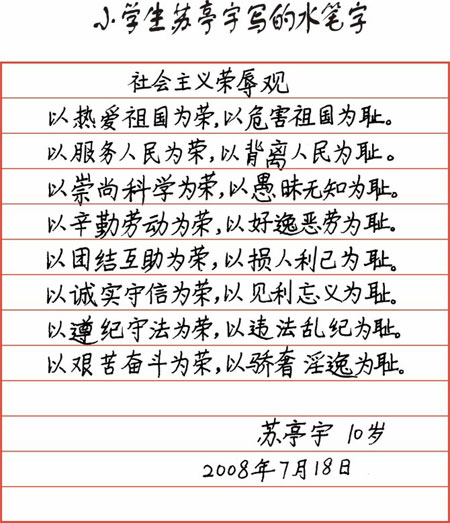 小学生苏亭宇写的水笔字
社会主义荣辱观
以热爱祖国为荣,以危害祖国为耻。
以服务人民为荣,以背离人民为耻。
以崇尚科学为荣,以愚昧无知为耻。
以辛勤劳动为荣,以好逸恶劳为耻。
以团结互助为荣,以损人利己为耻。
以诚实守信为荣,以见利忘义为耻。
以遵纪守法为荣,以违法乱纪为耻。
以艰苦奋斗为荣,以骄奢淫逸为耻。
苏亭宇 10岁
2008年7月18日